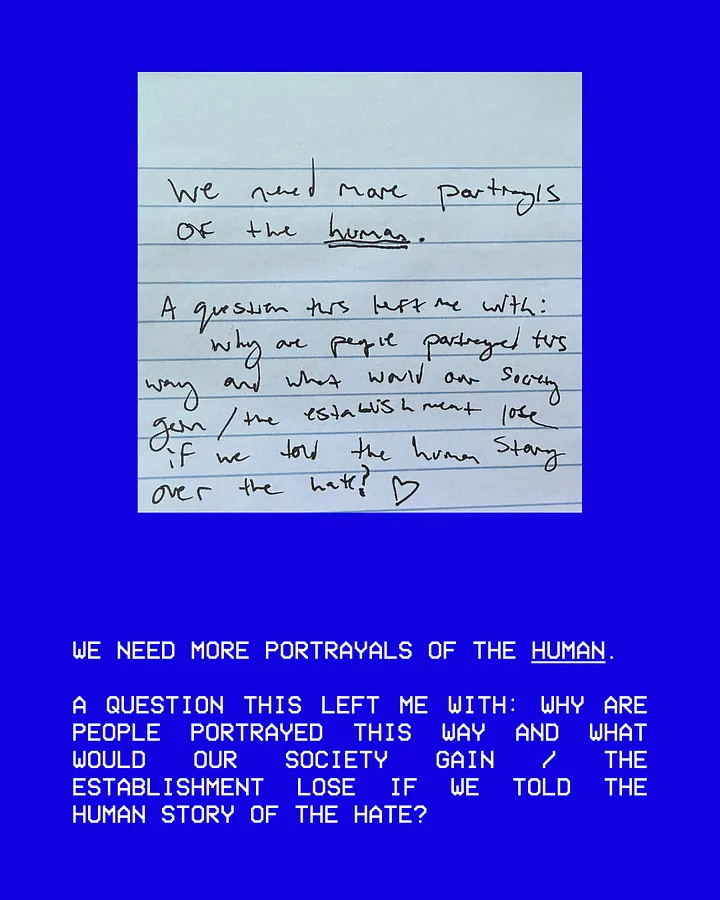 We need more portrayls
of the human.
A question this left me with:
why are people portrayed this
way and what would our society
gain / the establishment lose
if we told the human story
over the hate? ♡
WE NEED MORE PORTRAYALS OF THE HUMAN.
A QUESTION THIS LEFT ME WITH: WHY ARE
PEOPLE PORTRAYED THIS WAY AND WHAT
WOULD OUR SOCIETY GAIN / THE
ESTABLISHMENT LOSE IF WE TOLD THE
HUMAN STORY OF THE HATE?